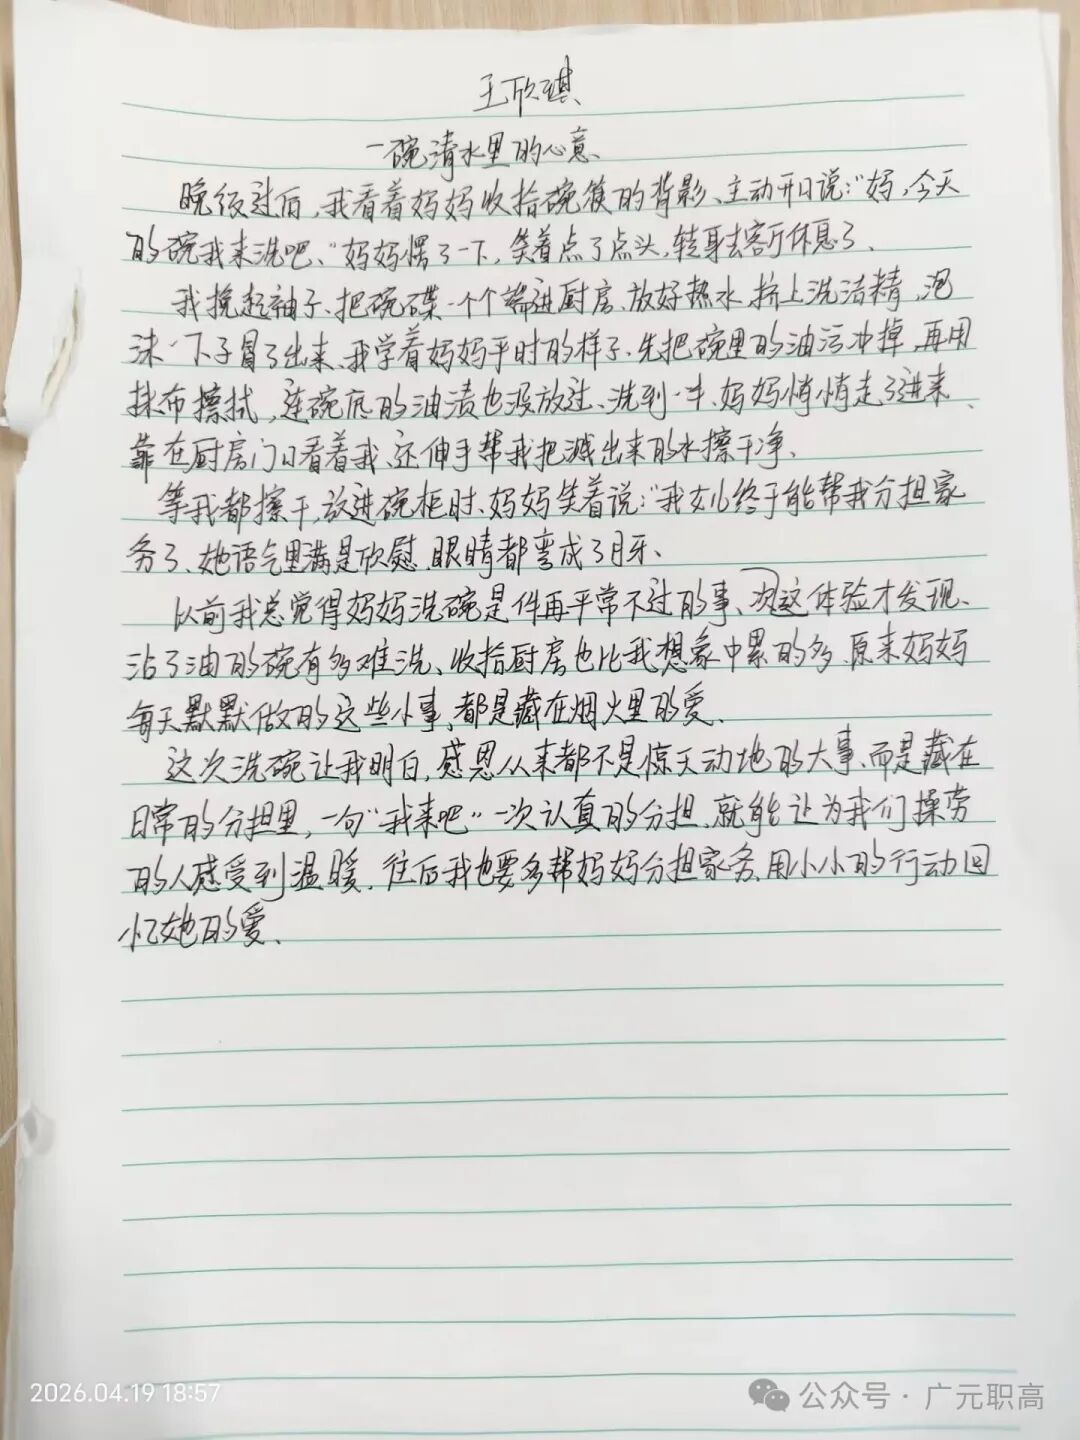 王欣琪
一碗清水里的心意、
晚饭过后，我看着妈妈收拾碗筷的背影、主动开口说：“妈，今天
的碗我来洗吧、”妈妈愣了一下，笑着点了点头，转身去客厅休息了、
我挽起袖子、把碗碟一个个端进厨房、放好热水、挤上洗洁精，泡
沫一下子冒了出来、我学着妈妈平时的样子、先把碗里的油污冲掉、再用
抹布擦拭，连碗底的油渍也没放过、洗到一半、妈妈悄悄走了进来、
靠在厨房门口看着我、还伸手帮我把溅出来的水擦干净、
等我都擦干，放进碗柜时、妈妈笑着说：“我女儿终于能帮我分担家
务了、她语气里满是欣慰、眼睛都弯成了月牙、
以前我总觉得妈妈洗碗是件再平常不过的事、次这体验才发现、
沾了油的碗有多难洗、收拾厨房也比我想象中累的多、原来妈妈
每天默默做的这些小事，都是藏在烟火里的爱、
这次洗碗让我明白，感恩从来都不是惊天动地的大事、而是藏在
日常的分担里，一句“我来吧”一次认真的分担、就能让为我们操劳
的人感受到温暖、往后我也要多帮妈妈分担家务、用小小的行动回
忆她的爱、
2026.04.19 18:57
公众号·广元职高